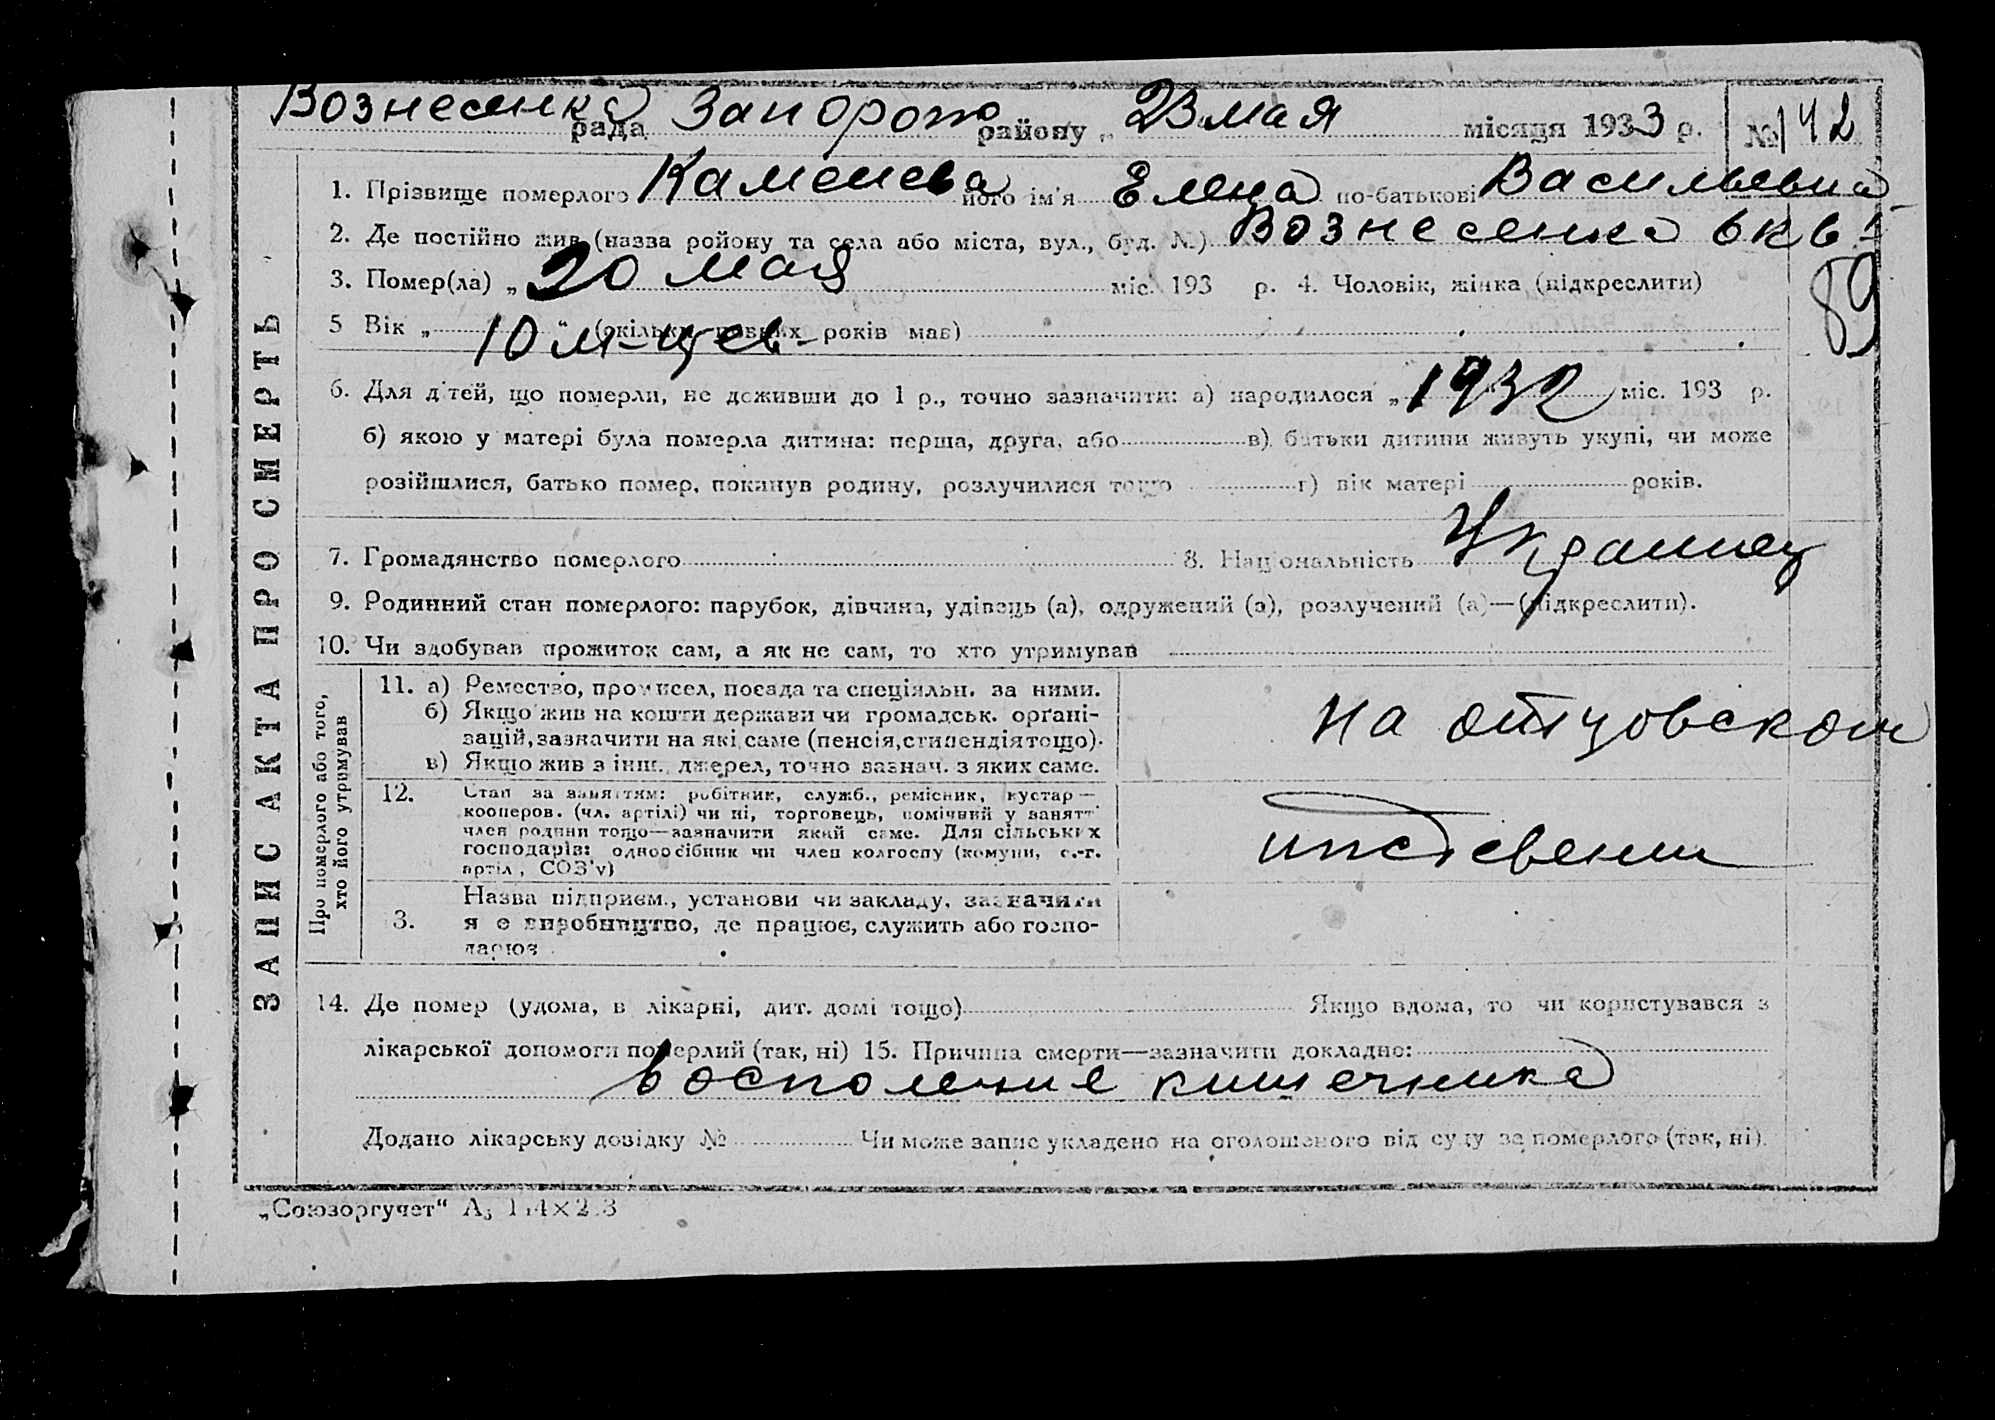 Вознесенка рада Запорож району „ 23 мая місяця 1933 р. № 142
1. Прізвище померлого Каменева його ім'я Елена по-батькові Васильевна
2. Де постійно жив (назва ройону та села або міста, вул., буд. №) Вознесенка 6 кв
89
3. Помер(ла) „ 20 мая міс. 193 р. 4. Чоловік, жінка (підкреслити)
5 Вік „ 10 м-цев “ (скільки повних років мав)
6. Для дітей, що померли, не доживши до 1 р., точно зазначити: а) народилося „ 1932 міс. 193 р.
б) якою у матері була померла дитина: перша, друга, або в) батьки дитини живуть укупі, чи може
розійшлися, батько помер, покинув родину, розлучилися тощо г) вік матері років.
7. Громадянство померлого 8. Національність Украинец
9. Родинний стан померлого: парубок, дівчина, удівець (а), одружений (а), розлучений (а)—(підкреслити).
10. Чи здобував прожиток сам, а як не сам, то хто утримував
ЗАПИС АКТА ПРО СМЕРТЬ
Про померлого або того,
хто його утримував
11. а) Ремество, промисел, посада та спеціяльн. за ними.
б) Якщо жив на кошти держави чи громадськ. орґані-
зацій, зазначити на які саме (пенсія, стипендія тощо).
в) Якщо жив з інш. джерел, точно зазнач. з яких саме.
на отцовском
12. Стан за заняттям: робітник, служб., ремісник, кустар—
кооперов. (чл. артілі) чи ні, торговець, помічний у занятт
член родини тощо—зазначити який саме. Для сільських
господарів: одноосібник чи член колгоспу (комуни, с.-г.
артіл , СОЗ'у)
иждевении
3. Назва підприєм., установи чи закладу, зазначити
я е виробництво, де працює, служить або госпо-
дарює
14. Де помер (удома, в лікарні, дит. домі тощо) Якщо вдома, то чи користувався з
лікарської допомоги померлий (так, ні) 15. Причина смерти—зазначити докладно:
восполение кишечника
Додано лікарську довідку № Чи може запис укладено на оголошеного від суду за померлого (так, ні).
„Союзоргучет“